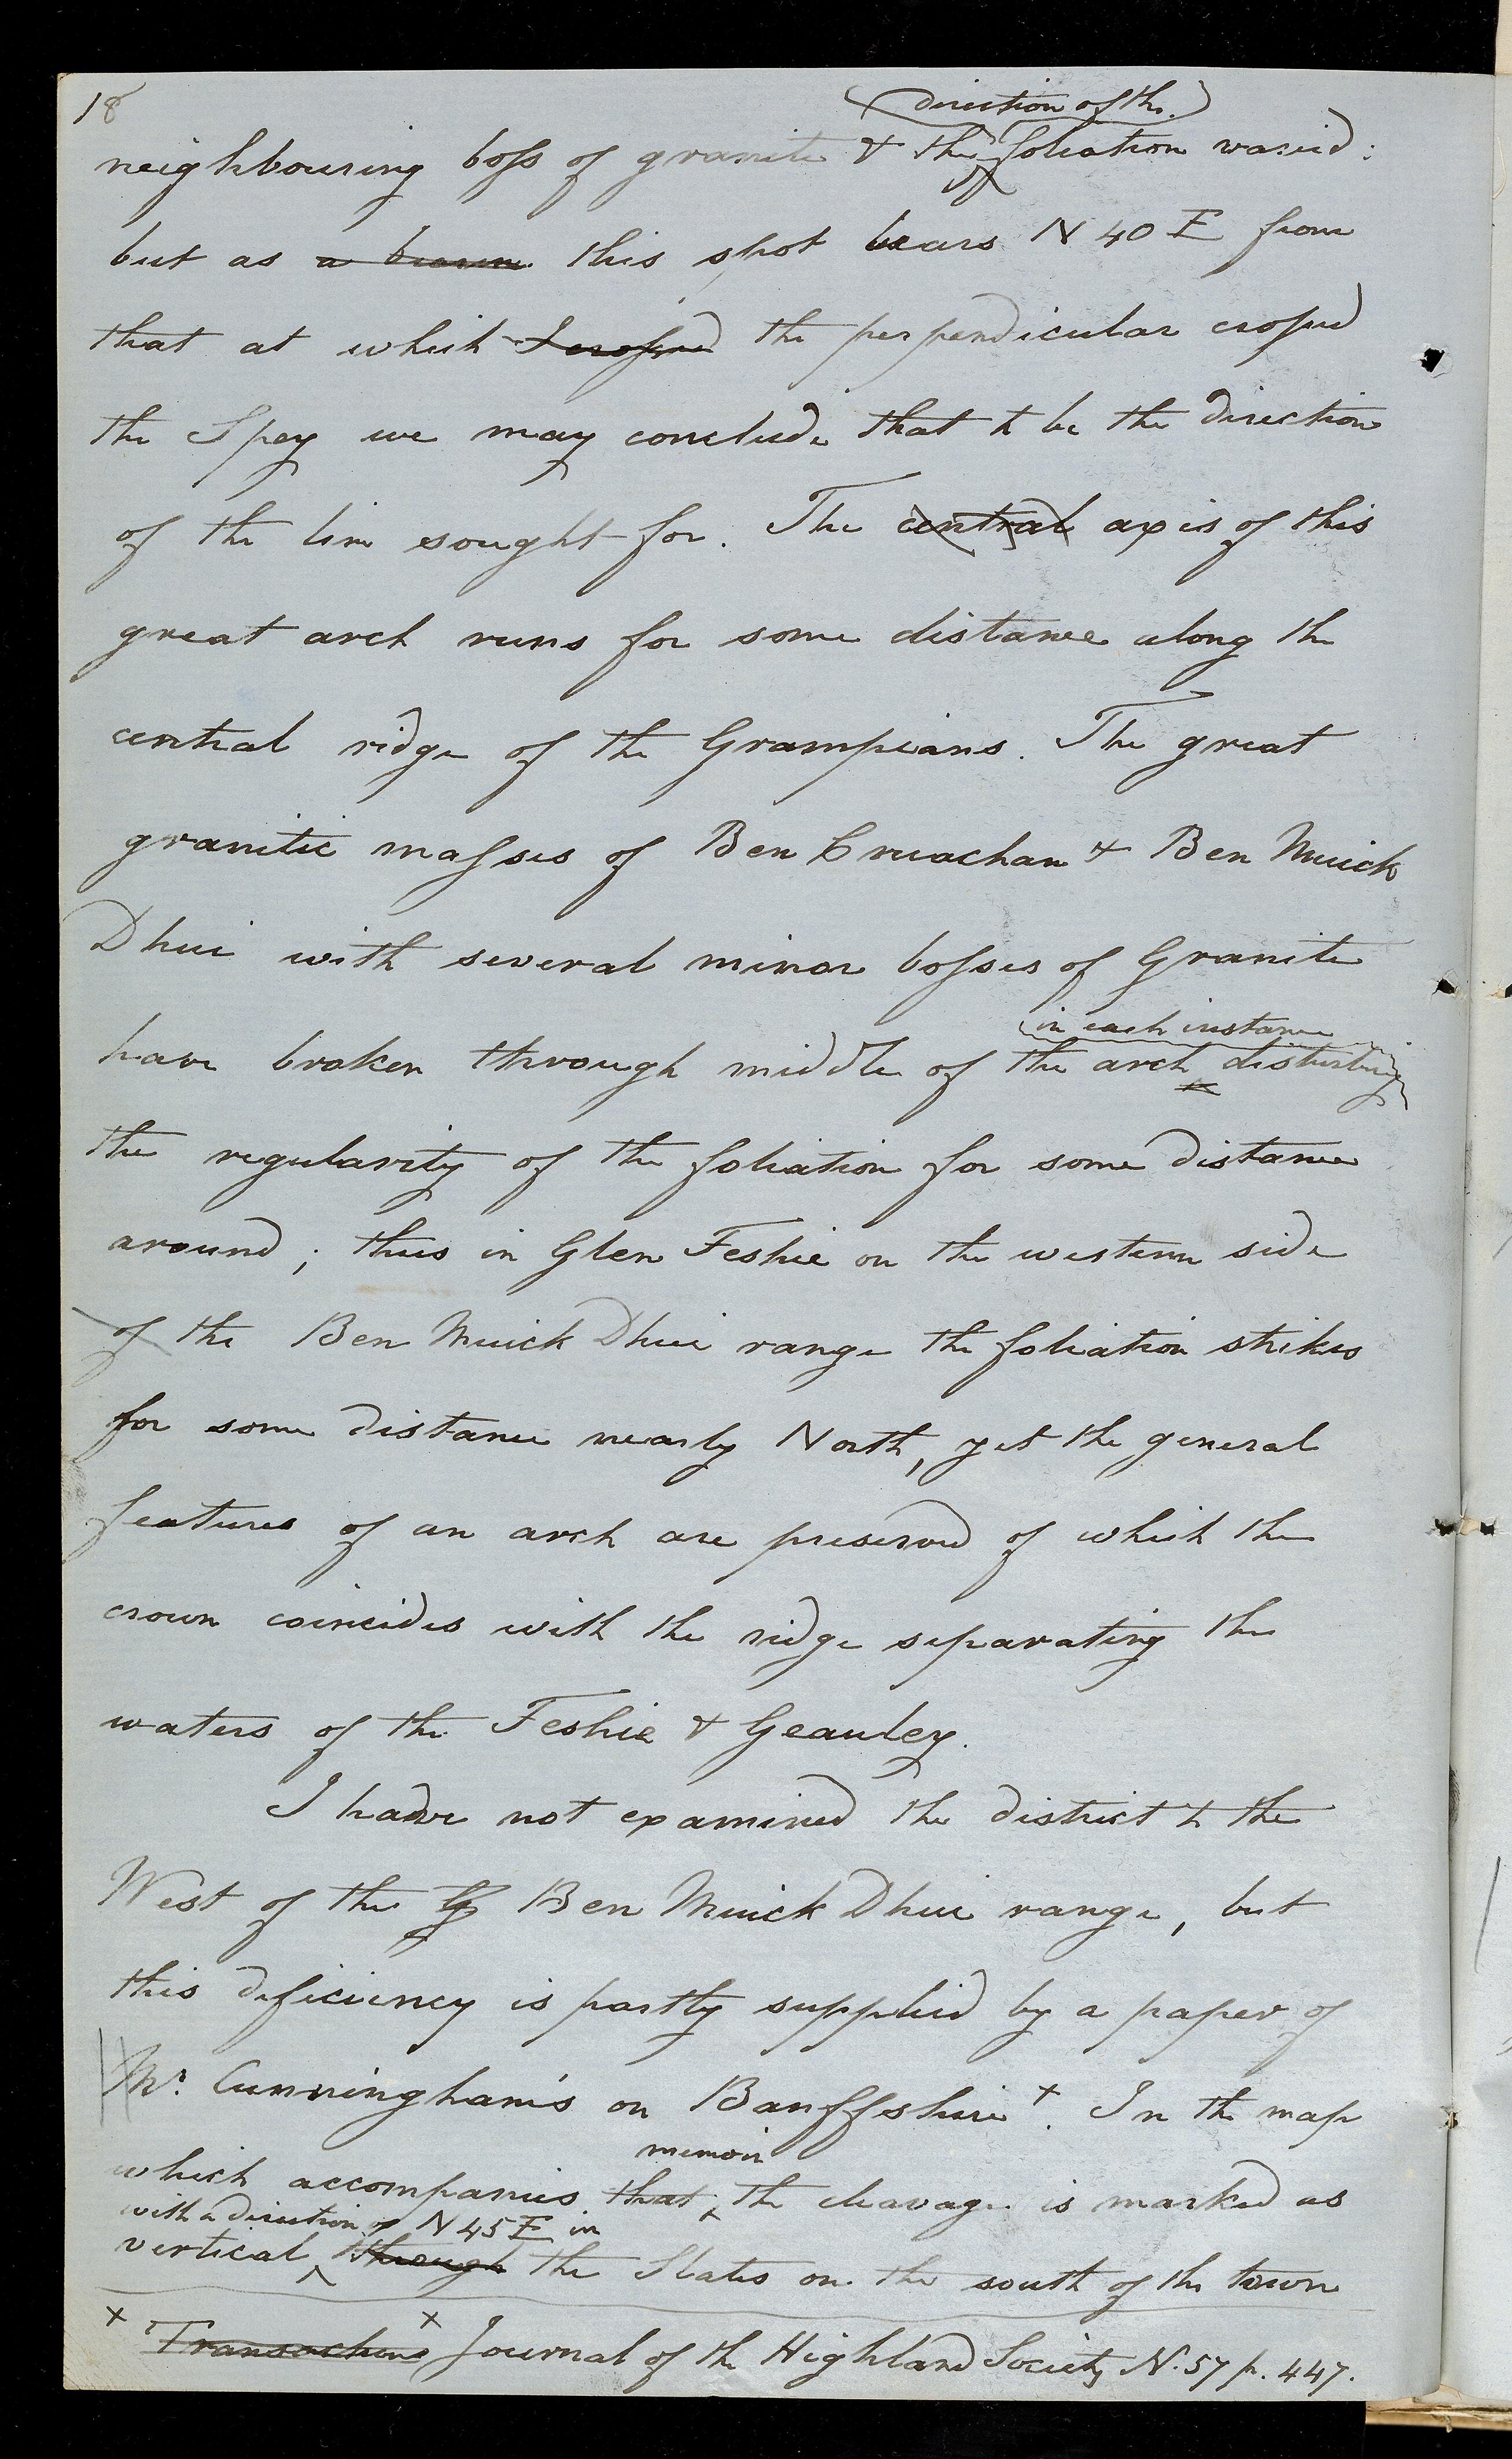 18
direction of the
neighbouring boss of granite & the foliation varied:
but as a bearin this spot bears N 40 E from
that at which I crossed the perpendicular crossed
the Spey we may conclude that to be the direction
of the line sought for. The central axis of this
great arch runs for some distance along the
central ridge of the Grampians. The great
granitic masses of Ben Cruachan & Ben Muick
Dhui with several minor bosses of Granite
in each instance
have broken through middle of the arch disturbing
the regularity of the foliation for some distance
around; thus in Glen Feshie on the western side
of the Ben Muick Dhui range the foliation strikes
for some distance nearly North, yet the general
features of an arch are preserved of which the
crown coincides with the ridge separating the
waters of the Feshie & Geauley.
I have not examined the district to the
West of the G Ben Muick Dhui range, but
this deficiency is partly supplied by a paper of
Mr. Cunningham's on Banffshire +. In the map
memoir
which accompanies that, the cleavage is marked as
with a direction of N 45 E in
vertical through the Slates on the south of the town
+ Transactions + Journal of the Highland Society N. 57 p. 447.